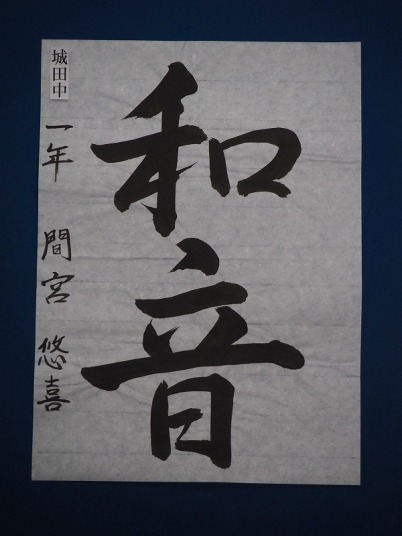 和音
城田中
一年 間宮 悠喜